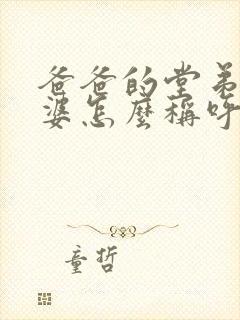 爸爸的堂弟
婆怎麼稱呼
童哲